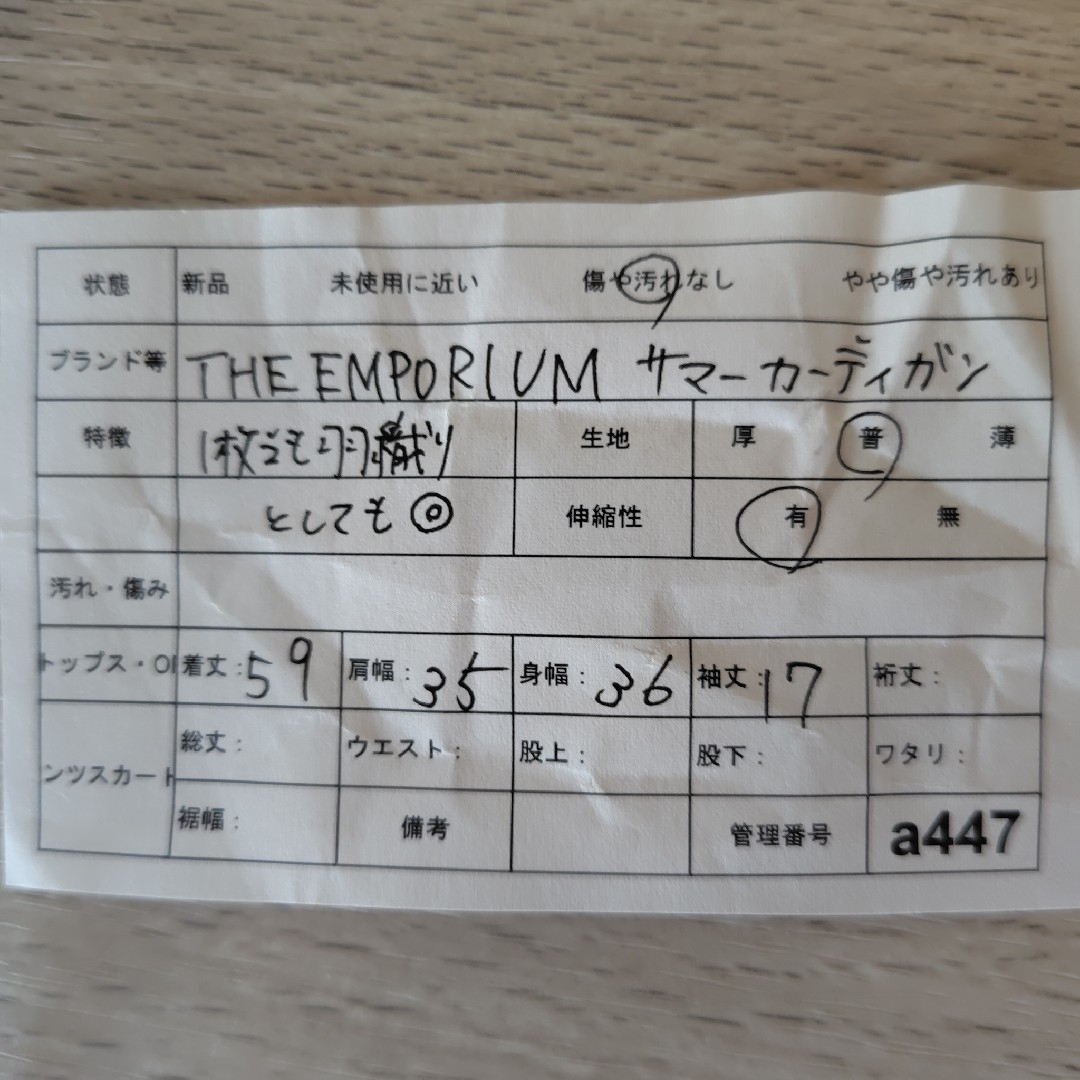 状態 新品 未使用に近い 傷や汚れなし やや傷や汚れあり
ブランド等 THE EMPORIUM サマーカーディガン
特徴 1枚でも羽織り 生地 厚 普 薄
としても◎ 伸縮性 有 無
汚れ・傷み
トップス・OP 着丈:59 肩幅:35 身幅:36 袖丈:17 裄丈:
ンツスカート 総丈: ウエスト: 股上: 股下: ワタリ:
裾幅: 備考 管理番号 a447